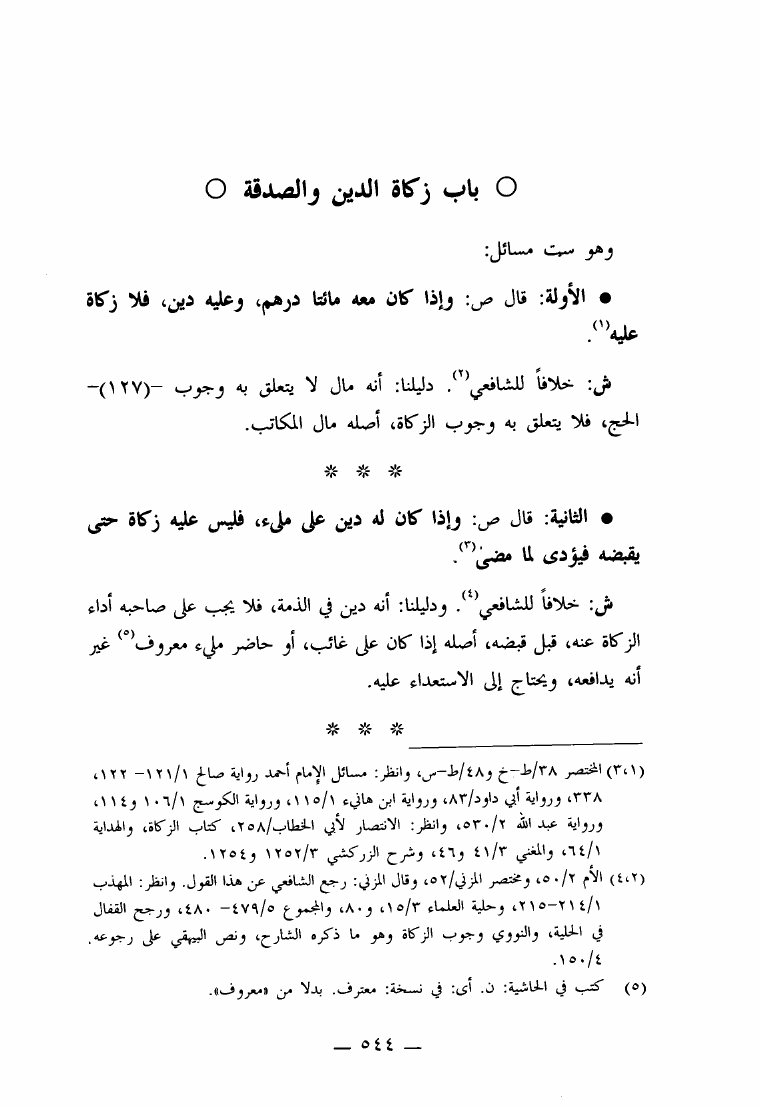 ○ باب زكاة الدين والصدقة ○
وهو ست مسائل:
● الأولة: قال ص: وإذا كان معه مائتا درهم، وعليه دين، فلا زكاة
عليه(١).
ش: خلافاً للشافعي(٢). دليلنا: أنه مال لا يتعلق به وجوب –(١٢٧)–
الحج، فلا يتعلق به وجوب الزكاة، أصله مال المكاتب.
※ ※ ※
● الثانية: قال ص: وإذا كان له دين على مليء، فليس عليه زكاة حتى
يقبضه فيؤدى لما مضى(٣).
ش: خلافاً للشافعي(٤). ودليلنا: أنه دين في الذمة، فلا يجب على صاحبه أداء
الزكاة عنه، قبل قبضه، أصله إذا كان على غائب، أو حاضر مليء معروف(٥) غير
أنه يدافعه، ويحتاج إلى الاستعداء عليه.
※ ※ ※
(٣،١) المختصر ٣٨/ط–خ و٤٨/ط–س، وانظر: مسائل الإمام أحمد رواية صالح ١٢١/١– ١٢٢،
٣٣٨، ورواية أبي داود/٨٣، ورواية ابن هانيء ١١٥/١، ورواية الكوسج ١٠٦/١ و١١٤،
ورواية عبد الله ٥٣٠/٢، وانظر: الانتصار لأبي الخطاب/٢٥٨، كتاب الزكاة، والهداية
٦٤/١، والمغني ٤١/٣ و٤٦، وشرح الزركشي ١٢٥٢/٣ و١٢٥٤.
(٤،٢) الأم ٥٠/٢، ومختصر المزني/٥٢، وقال المزني: رجع الشافعي عن هذا القول. وانظر: المهذب
٢١٤/١–٢١٥، وحلية العلماء ١٥/٣، و٨٠، والمجموع ٤٧٩/٥– ٤٨٠، ورجح القفال
في الحلية، والنووي وجوب الزكاة وهو ما ذكره الشارح، ونص البيهقي على رجوعه.
١٥٠/٤.
(٥) كتب في الحاشية: ن. أى: في نسخة: معترف. بدلا من «معروف».
— ٥٤٤ —